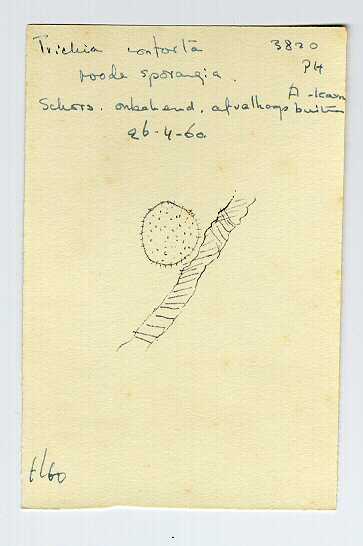 Trichia contorta 3820
roode sporangia. P4
Schors. onbekend. afvalhoop buiten
26-4-60
t/60